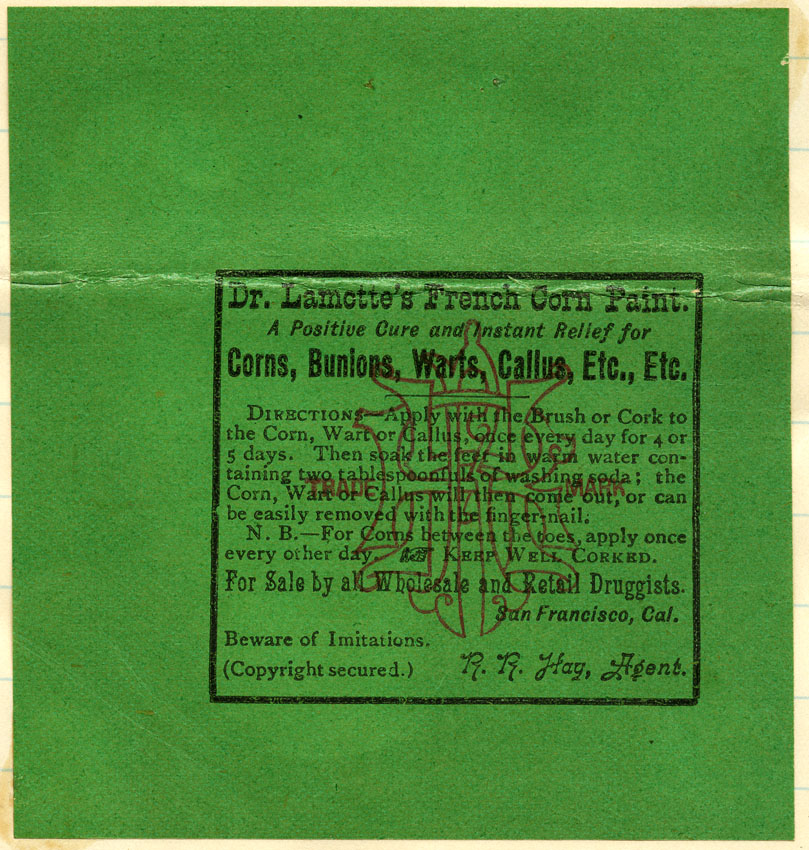 Dr. Lamotte's French Corn Paint.
A Positive Cure and Instant Relief for
Corns, Bunions, Warts, Callus, Etc., Etc.
DIRECTIONS—Apply with the Brush or Cork to
the Corn, Wart or Callus, once every day for 4 or
5 days. Then soak the feet in warm water con-
taining two tablespoonfuls of washing soda; the
Corn, Wart or Callus will then come out, or can
be easily removed with the finger-nail.
TRADE MARK
N. B.—For Corns between the toes, apply once
every other day. ☞ KEEP WELL CORKED.
For Sale by all Wholesale and Retail Druggists.
San Francisco, Cal.
Beware of Imitations.
(Copyright secured.) R. R. Hay, Agent.